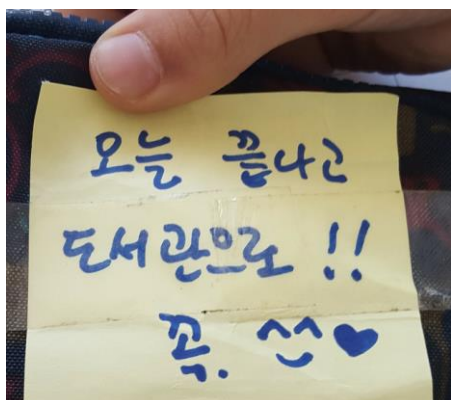 오늘 끝나고
도서관으로 !!
꼭. ^^♥